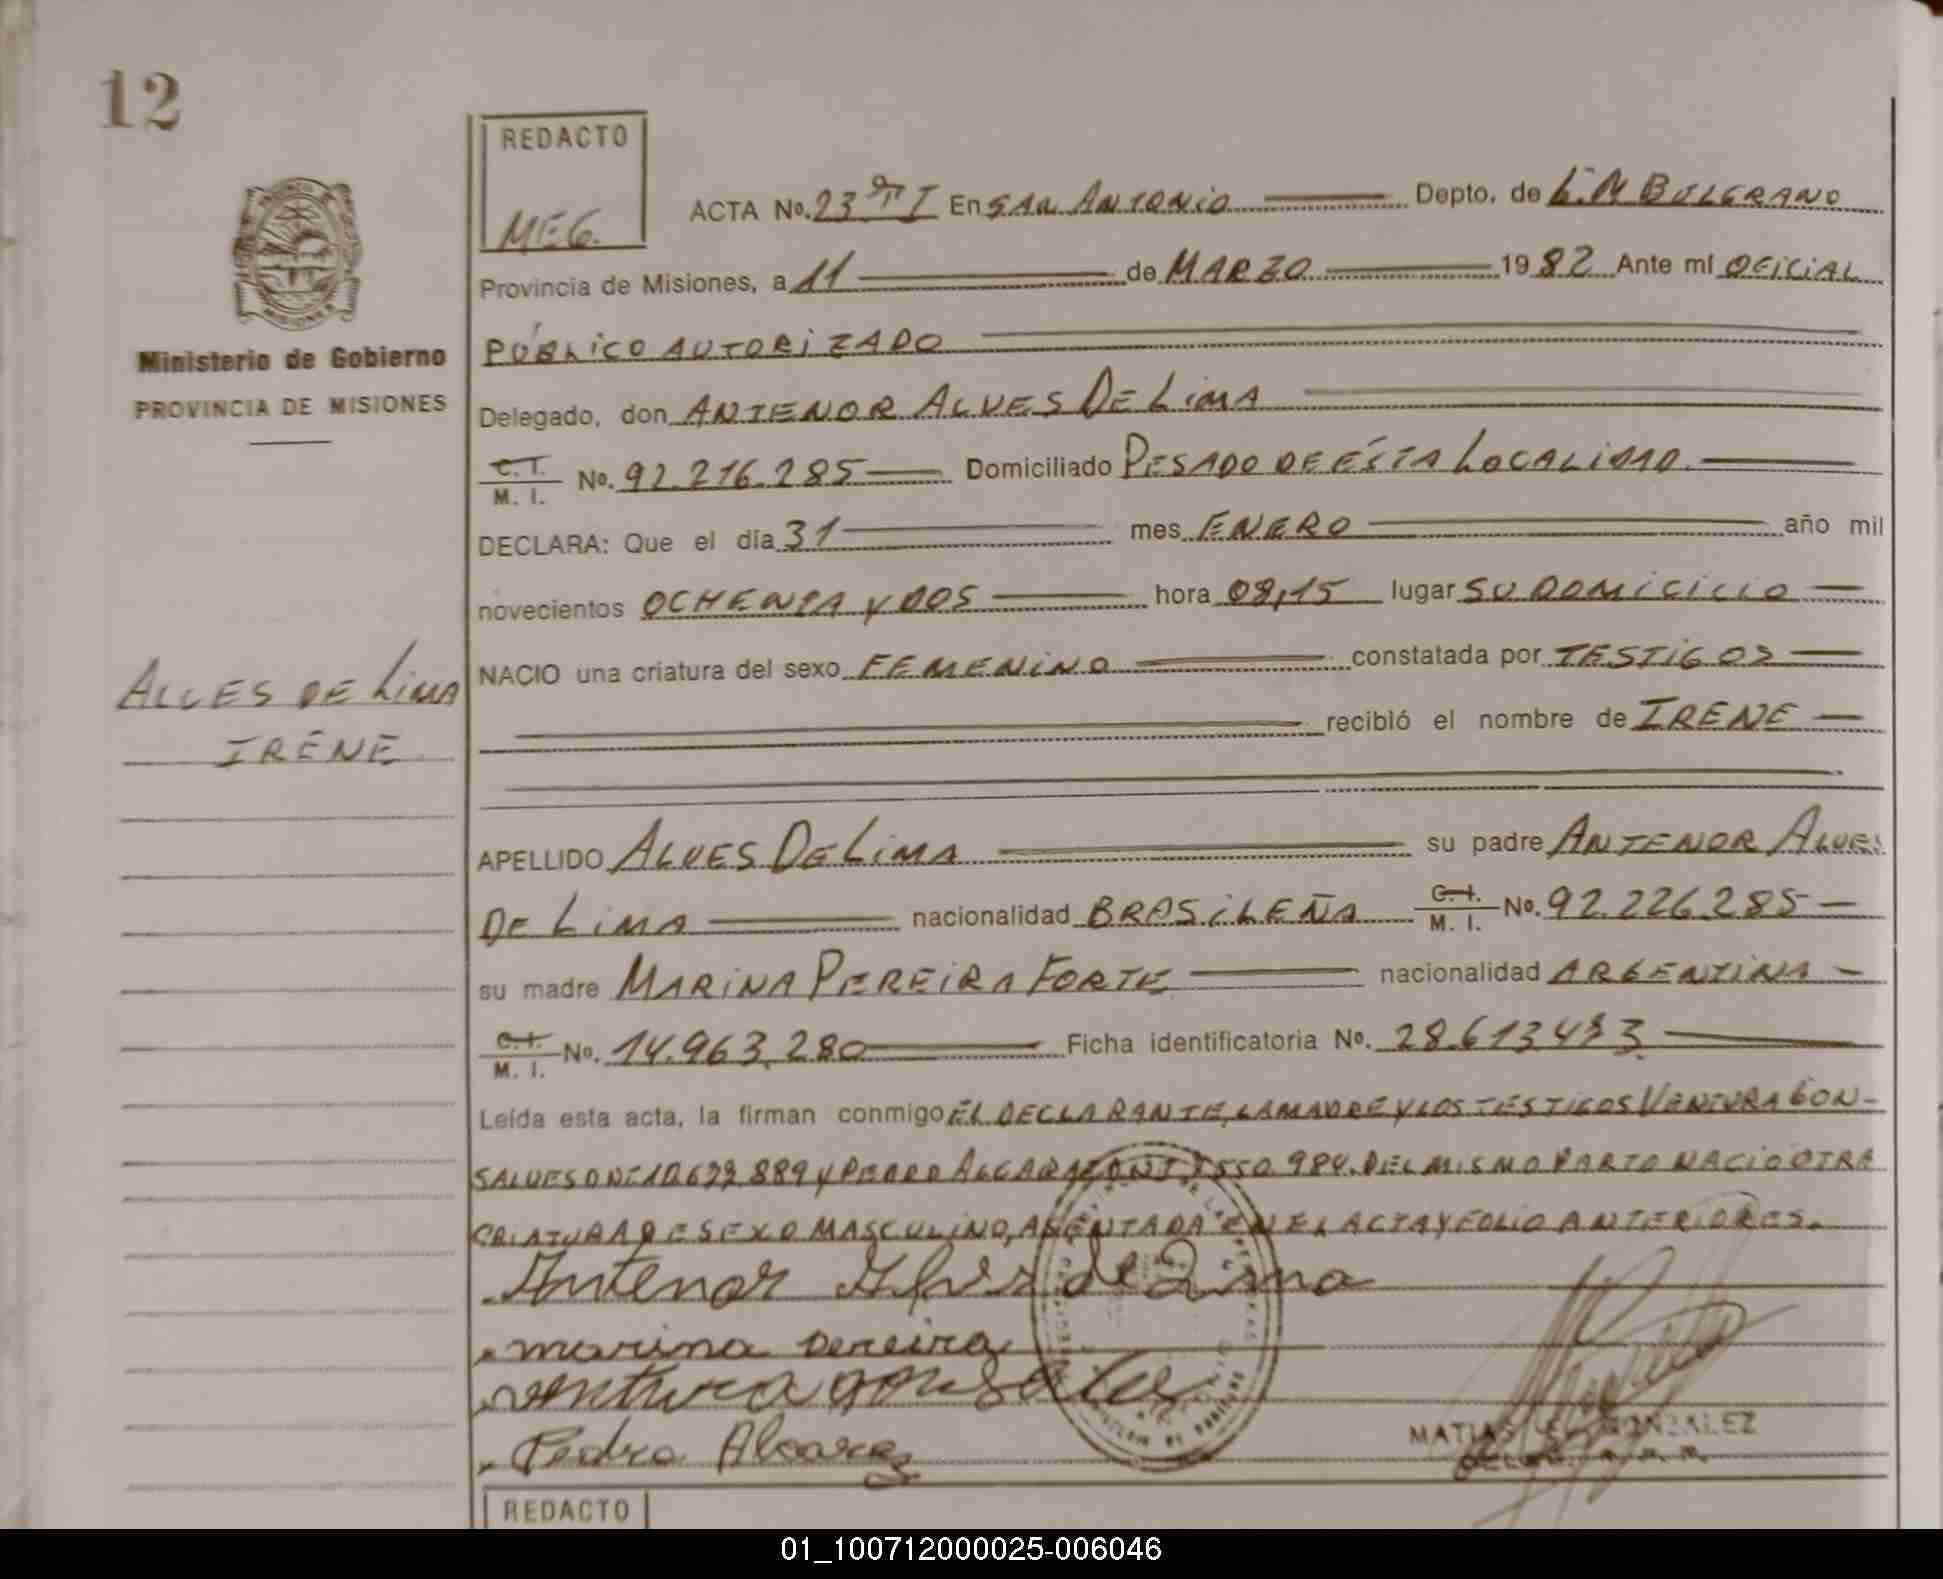 12
REDACTO
MEG.
Ministerio de Gobierno
PROVINCIA DE MISIONES
ALVES DE LIMA
IRENE
ACTA No. 23 TI En SAN ANTONIO Depto. de G.M BELGRANO
Provincia de Misiones, a 11 de MARZO 1982 Ante mí OFICIAL
PÚBLICO AUTORIZADO
Delegado, don ANTENOR ALVES DE LIMA
C.I. M. I. No. 92.216.285 Domiciliado PESADO DE ÉSTA LOCALIDAD.
DECLARA: Que el día 31 mes ENERO año mil
novecientos OCHENTA y DOS hora 08,15 lugar SU DOMICILIO
NACIO una criatura del sexo FEMENINO constatada por TESTIGOS
recibió el nombre de IRENE
APELLIDO ALVES DE LIMA su padre ANTENOR ALVES
DE LIMA nacionalidad BRASILEÑA C.I. M. I. No. 92.226.285
su madre MARINA PEREIRA FORTE nacionalidad ARGENTINA
C.I. M. I. No. 14.963.280 Ficha identificatoria No. 28.613.433
Leída esta acta, la firman conmigo EL DECLARANTE, LA MADRE Y LOS TESTIGOS VENTURA GON-
SALVES DNI 10.679.889 y PEDRO 550.984. DEL MISMO PARTO NACIÓ OTRA
CRIATURA DE SEXO MASCULINO, ASENTADA EN EL ACTA Y FOLIO ANTERIORES.
Antenor Alves de Lima
marina pereira
ventura gonsalves
Pedro Alcaraz
MATIAS GONZALEZ
REDACTO
01_100712000025-006046